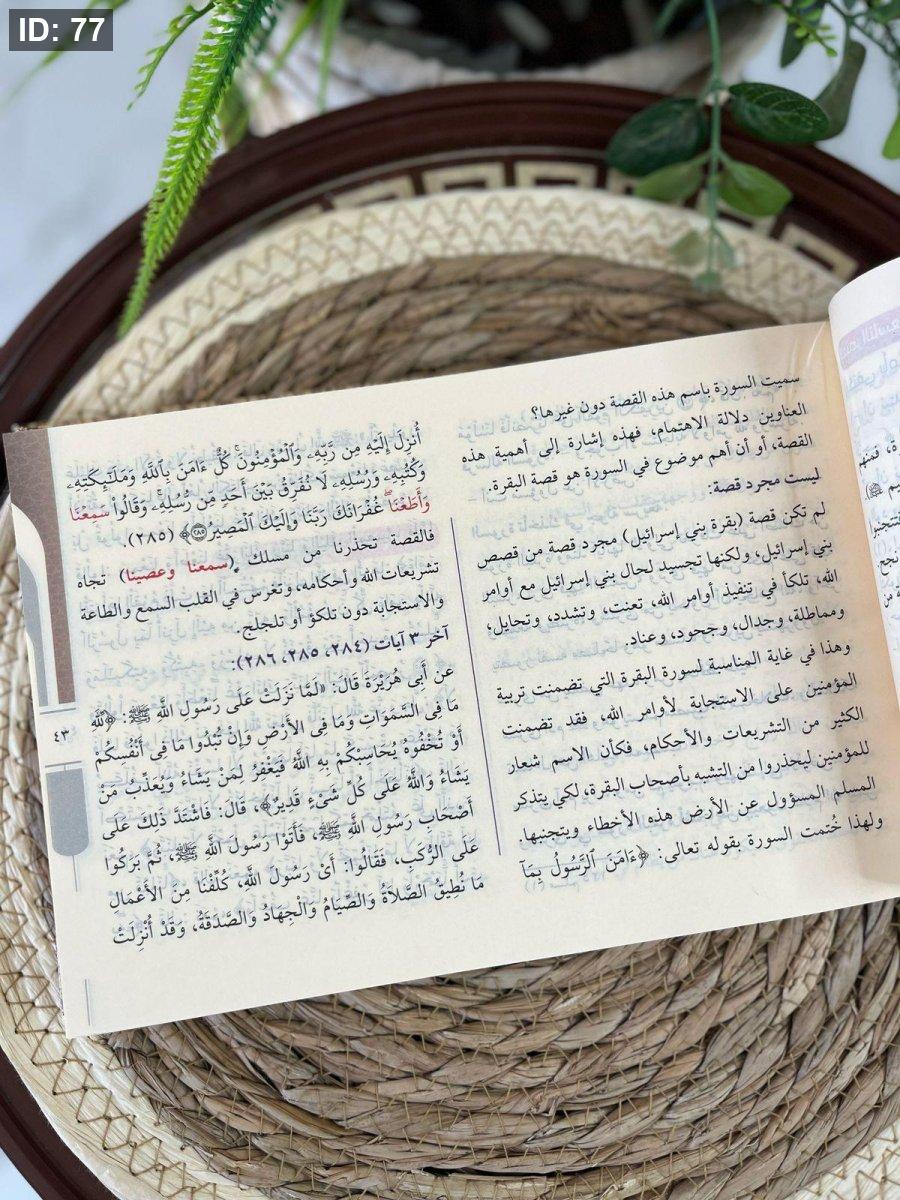 ID: 77
سميت السورة باسم هذه القصة دون غيرها؟
العناوين دلالة الاهتمام، فهذه إشارة إلى أهمية هذه
القصة، أو أن أهم موضوع في السورة هو قصة البقرة.
ليست مجرد قصة:
لم تكن قصة (بقرة بني إسرائيل) مجرد قصة من قصص
بني إسرائيل، ولكنها تجسيد لحال بني إسرائيل مع أوامر
الله، تلكأ في تنفيذ أوامر الله، تعنت، وتشدد، وتحايل،
ومماطلة، وجدال، وجحود، وعناد.
وهذا في غاية المناسبة لسورة البقرة التي تضمنت تربية
المؤمنين على الاستجابة لأوامر الله، فقد تضمنت
الكثير من التشريعات والأحكام، فكأن الاسم شعار
للمؤمنين ليحذروا من التشبه بأصحاب البقرة، لكي يتذكر
المسلم المسؤول عن الأرض هذه الأخطاء ويتجنبها.
ولهذا خُتمت السورة بقوله تعالى: ﴿ءَامَنَ ٱلرَّسُولُ بِمَآ
أُنزِلَ إِلَيْهِ مِن رَّبِّهِۦ وَٱلْمُؤْمِنُونَ كُلٌّ ءَامَنَ بِٱللَّهِ وَمَلَـٰٓئِكَتِهِۦ
وَكُتُبِهِۦ وَرُسُلِهِۦ لَا نُفَرِّقُ بَيْنَ أَحَدٍ مِّن رُّسُلِهِۦ وَقَالُوا۟ سَمِعْنَا
وَأَطَعْنَا غُفْرَانَكَ رَبَّنَا وَإِلَيْكَ ٱلْمَصِيرُ ٢٨٥﴾ (٢٨٥).
فالقصة تحذرنا من مسلك (سمعنا وعصينا) تجاه
تشريعات الله وأحكامه، وتغرس في القلب السمع والطاعة
والاستجابة دون تلكؤ أو تلجلج.
آخر ٣ آيات (٢٨٤، ٢٨٥، ٢٨٦):
عن أَبِي هُرَيْرَةَ قَالَ: «لَمَّا نَزَلَتْ عَلَى رَسُولِ اللَّهِ ﷺ: ﴿لِلَّهِ
مَا فِي السَّمَوَاتِ وَمَا فِي الأَرْضِ وَإِنْ تُبْدُوا مَا فِي أَنْفُسِكُمْ
أَوْ تُخْفُوهُ يُحَاسِبْكُمْ بِهِ اللَّهُ فَيَغْفِرُ لِمَنْ يَشَاءُ وَيُعَذِّبُ مَنْ
يَشَاءُ وَاللَّهُ عَلَى كُلِّ شَيْءٍ قَدِيرٌ﴾، قَالَ: فَاشْتَدَّ ذَلِكَ عَلَى
أَصْحَابِ رَسُولِ اللَّهِ ﷺ، فَأَتَوْا رَسُولَ اللَّهِ ﷺ، ثُمَّ بَرَكُوا
عَلَى الرُّكَبِ، فَقَالُوا: أَيْ رَسُولَ اللَّهِ، كُلِّفْنَا مِنَ الأَعْمَالِ
مَا نُطِيقُ الصَّلاَةُ وَالصِّيَامُ وَالْجِهَادُ وَالصَّدَقَةُ، وَقَدْ أُنْزِلَتْ
٤٣